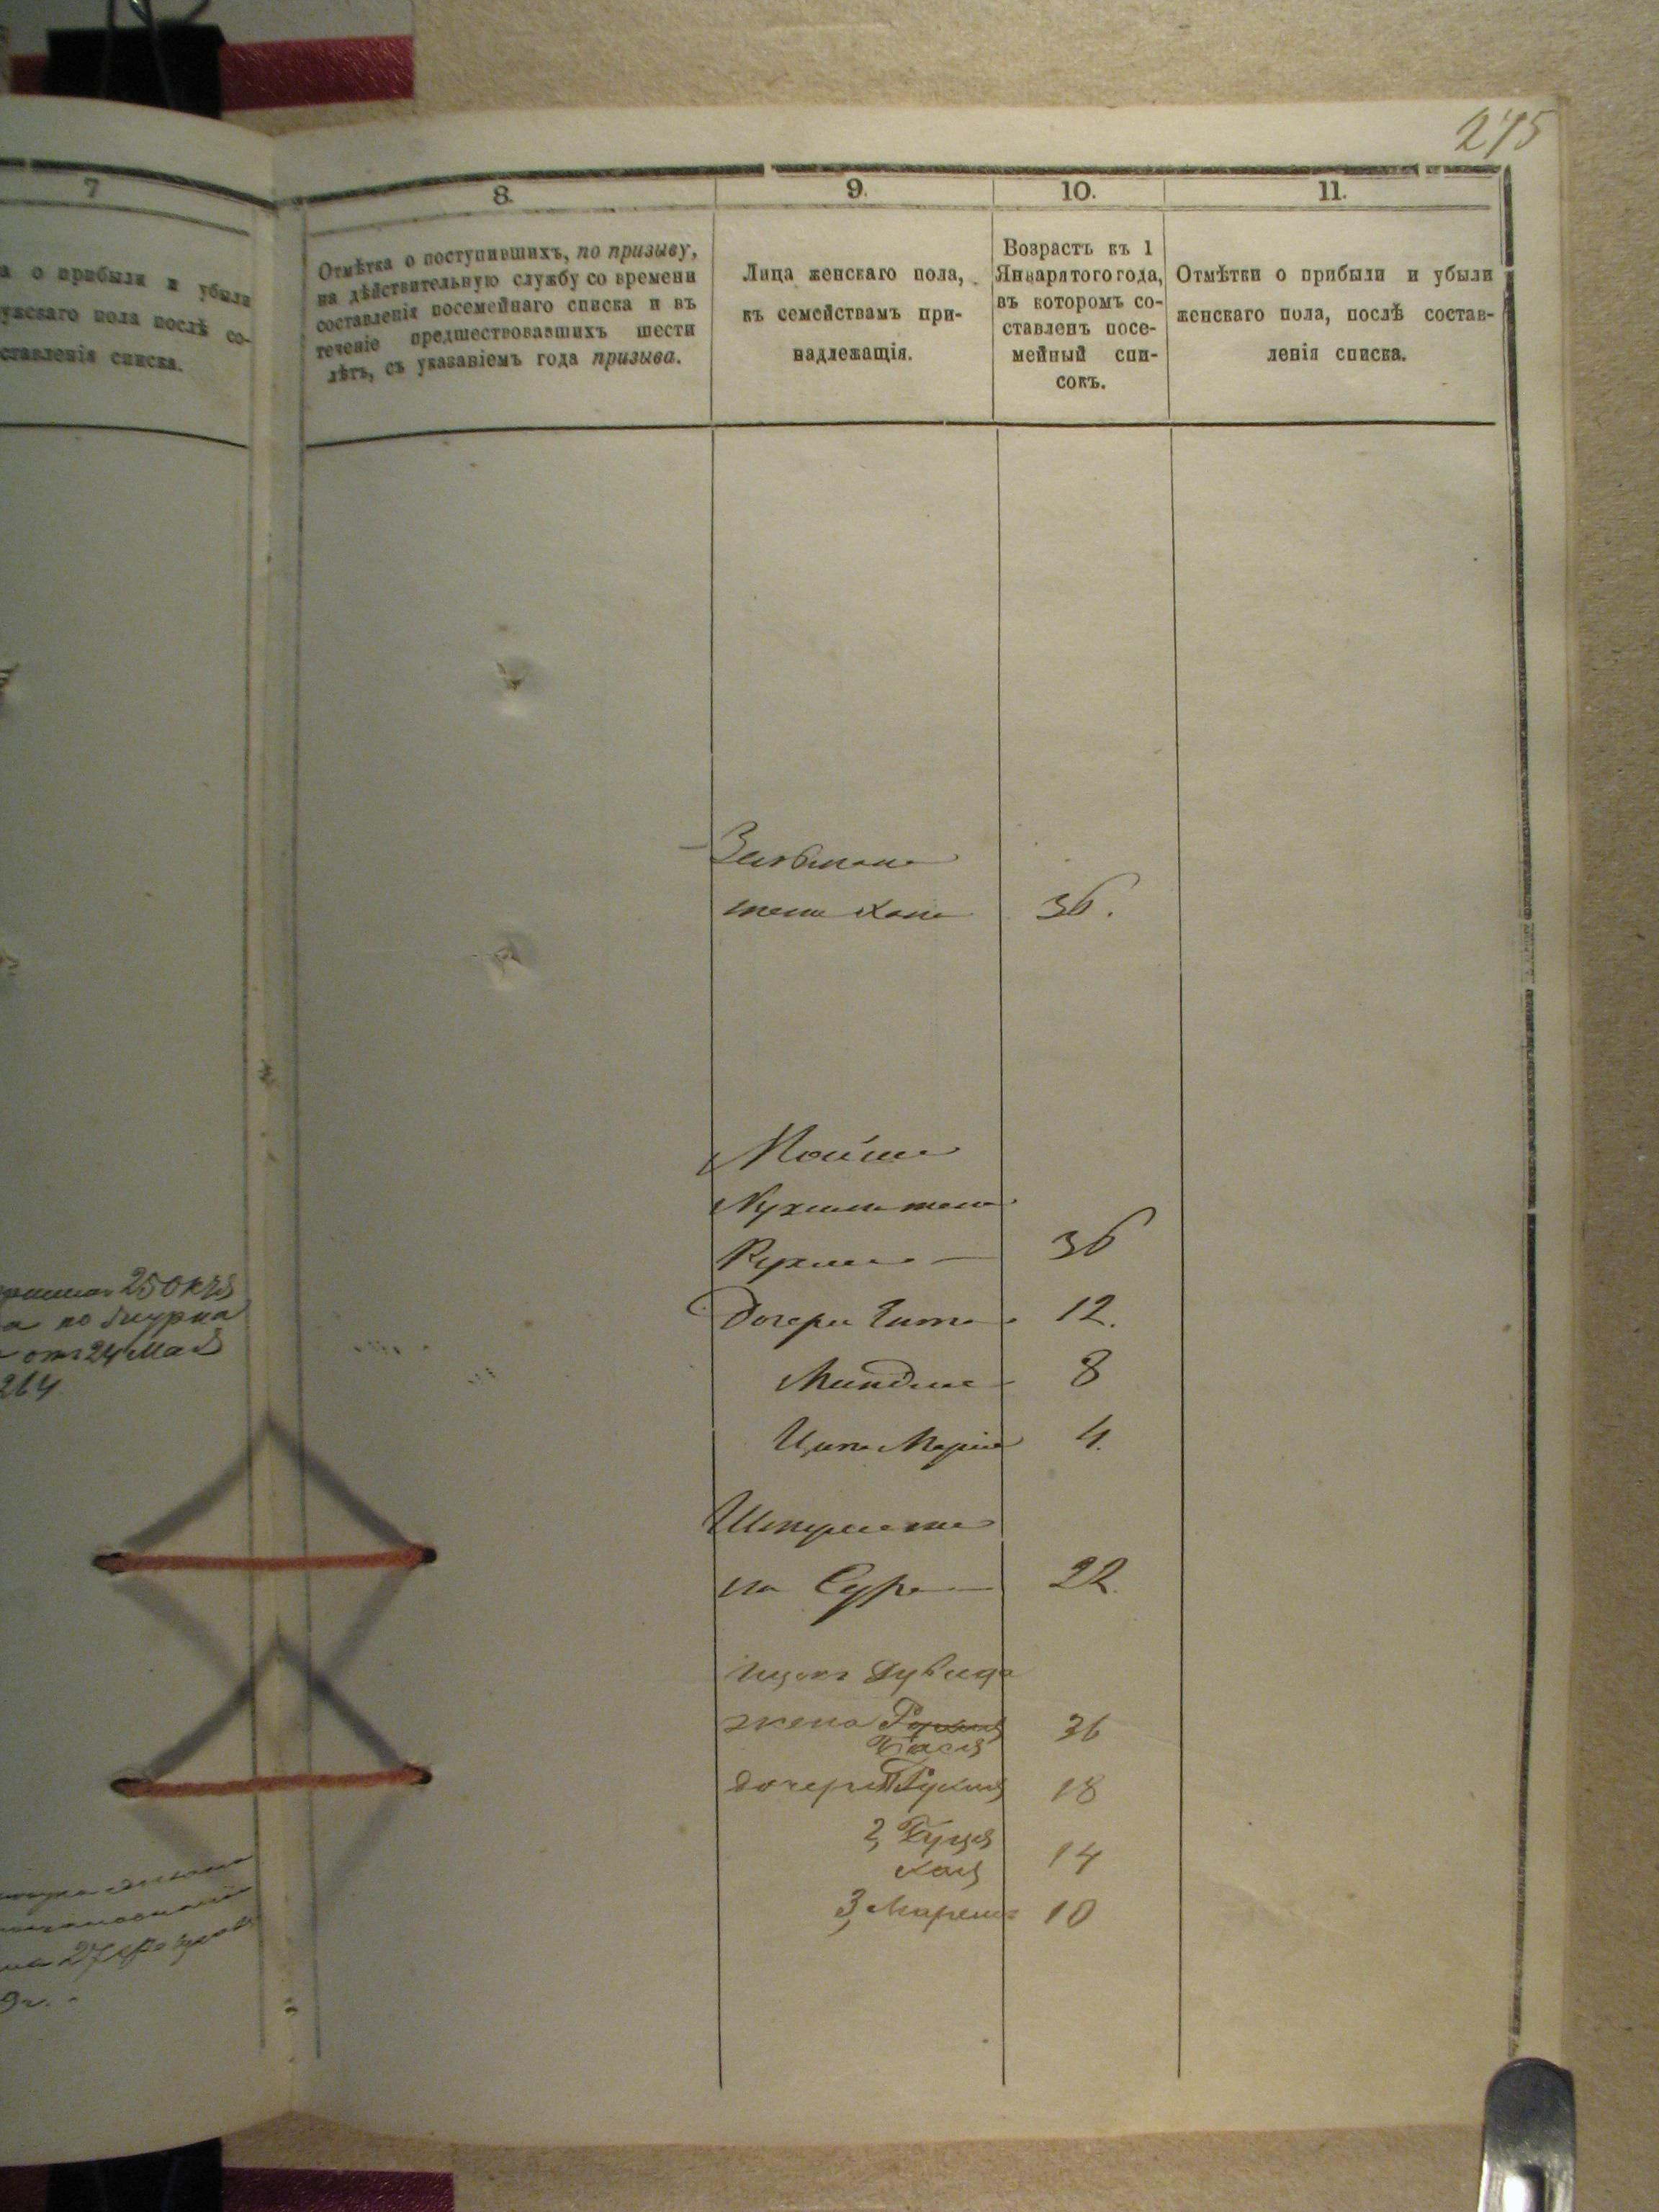 275
7
а о прибыли и убыли
ужскаго пола послѣ со-
ставленія списка.
250
отъ 24 Мая
264
на 27
9 г.
8.
Отмѣтка о поступившихъ, по призыву,
на дѣйствительную службу со времени
составленія посемейнаго списка и въ
теченіе предшествовавшихъ шести
лѣтъ, съ указаніемъ года призыва.
9.
Лица женскаго пола,
къ семействамъ при-
надлежащія.
10.
Возрастъ къ 1
Января того года,
въ которомъ со-
ставленъ посе-
мейный спи-
сокъ.
11.
Отмѣтки о прибыли и убыли
женскаго пола, послѣ состав-
ленія списка.
Зельмана
жена Хана 36.
Мойше
Нухима жена
Рухля 36
Дочери Гита 12.
Миндля 8
Ципа Марія 4.
Шмуля же
на Сура 22.
Ицокъ Дувида
жена Рухля
Бася 36
дочери 1, Рухля 18
2,
Хая 14
3, 10